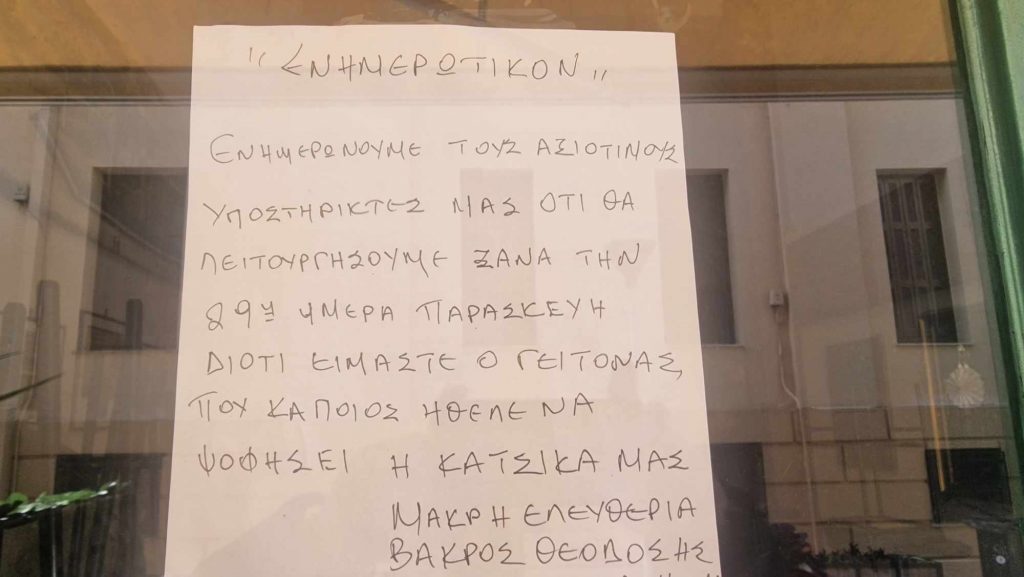 "ΕΝΗΜΕΡΩΤΙΚΟΝ"
ΕΝΗΜΕΡΩΝΟΥΜΕ ΤΟΥΣ ΑΞΙΟΤΙΜΟΥΣ
ΥΠΟΣΤΗΡΙΚΤΕΣ ΜΑΣ ΟΤΙ ΘΑ
ΛΕΙΤΟΥΡΓΗΣΟΥΜΕ ΞΑΝΑ ΤΗΝ
89η ΗΜΕΡΑ ΠΑΡΑΣΚΕΥΗ
ΔΙΟΤΙ ΕΙΜΑΣΤΕ Ο ΓΕΙΤΟΝΑΣ,
ΠΟΥ ΚΑΠΟΙΟΣ ΗΘΕΛΕ ΝΑ
ΨΟΦΗΣΕΙ Η ΚΑΤΣΙΚΑ ΜΑΣ
ΜΑΚΡΗ ΕΛΕΥΘΕΡΙΑ
ΒΑΚΡΟΣ ΘΕΟΔΟΣΗΣ